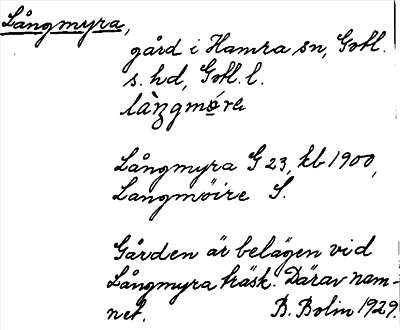 Långmyra,
gård i Hamra sn, Gotl.
s. hd, Gotl. l.
làŋgmǿra
Långmyra G 23, kb 1900,
Langmöire S.
Gården är belägen vid
Långmyra träsk. Därav nam-
net. B. Bolin 1929.